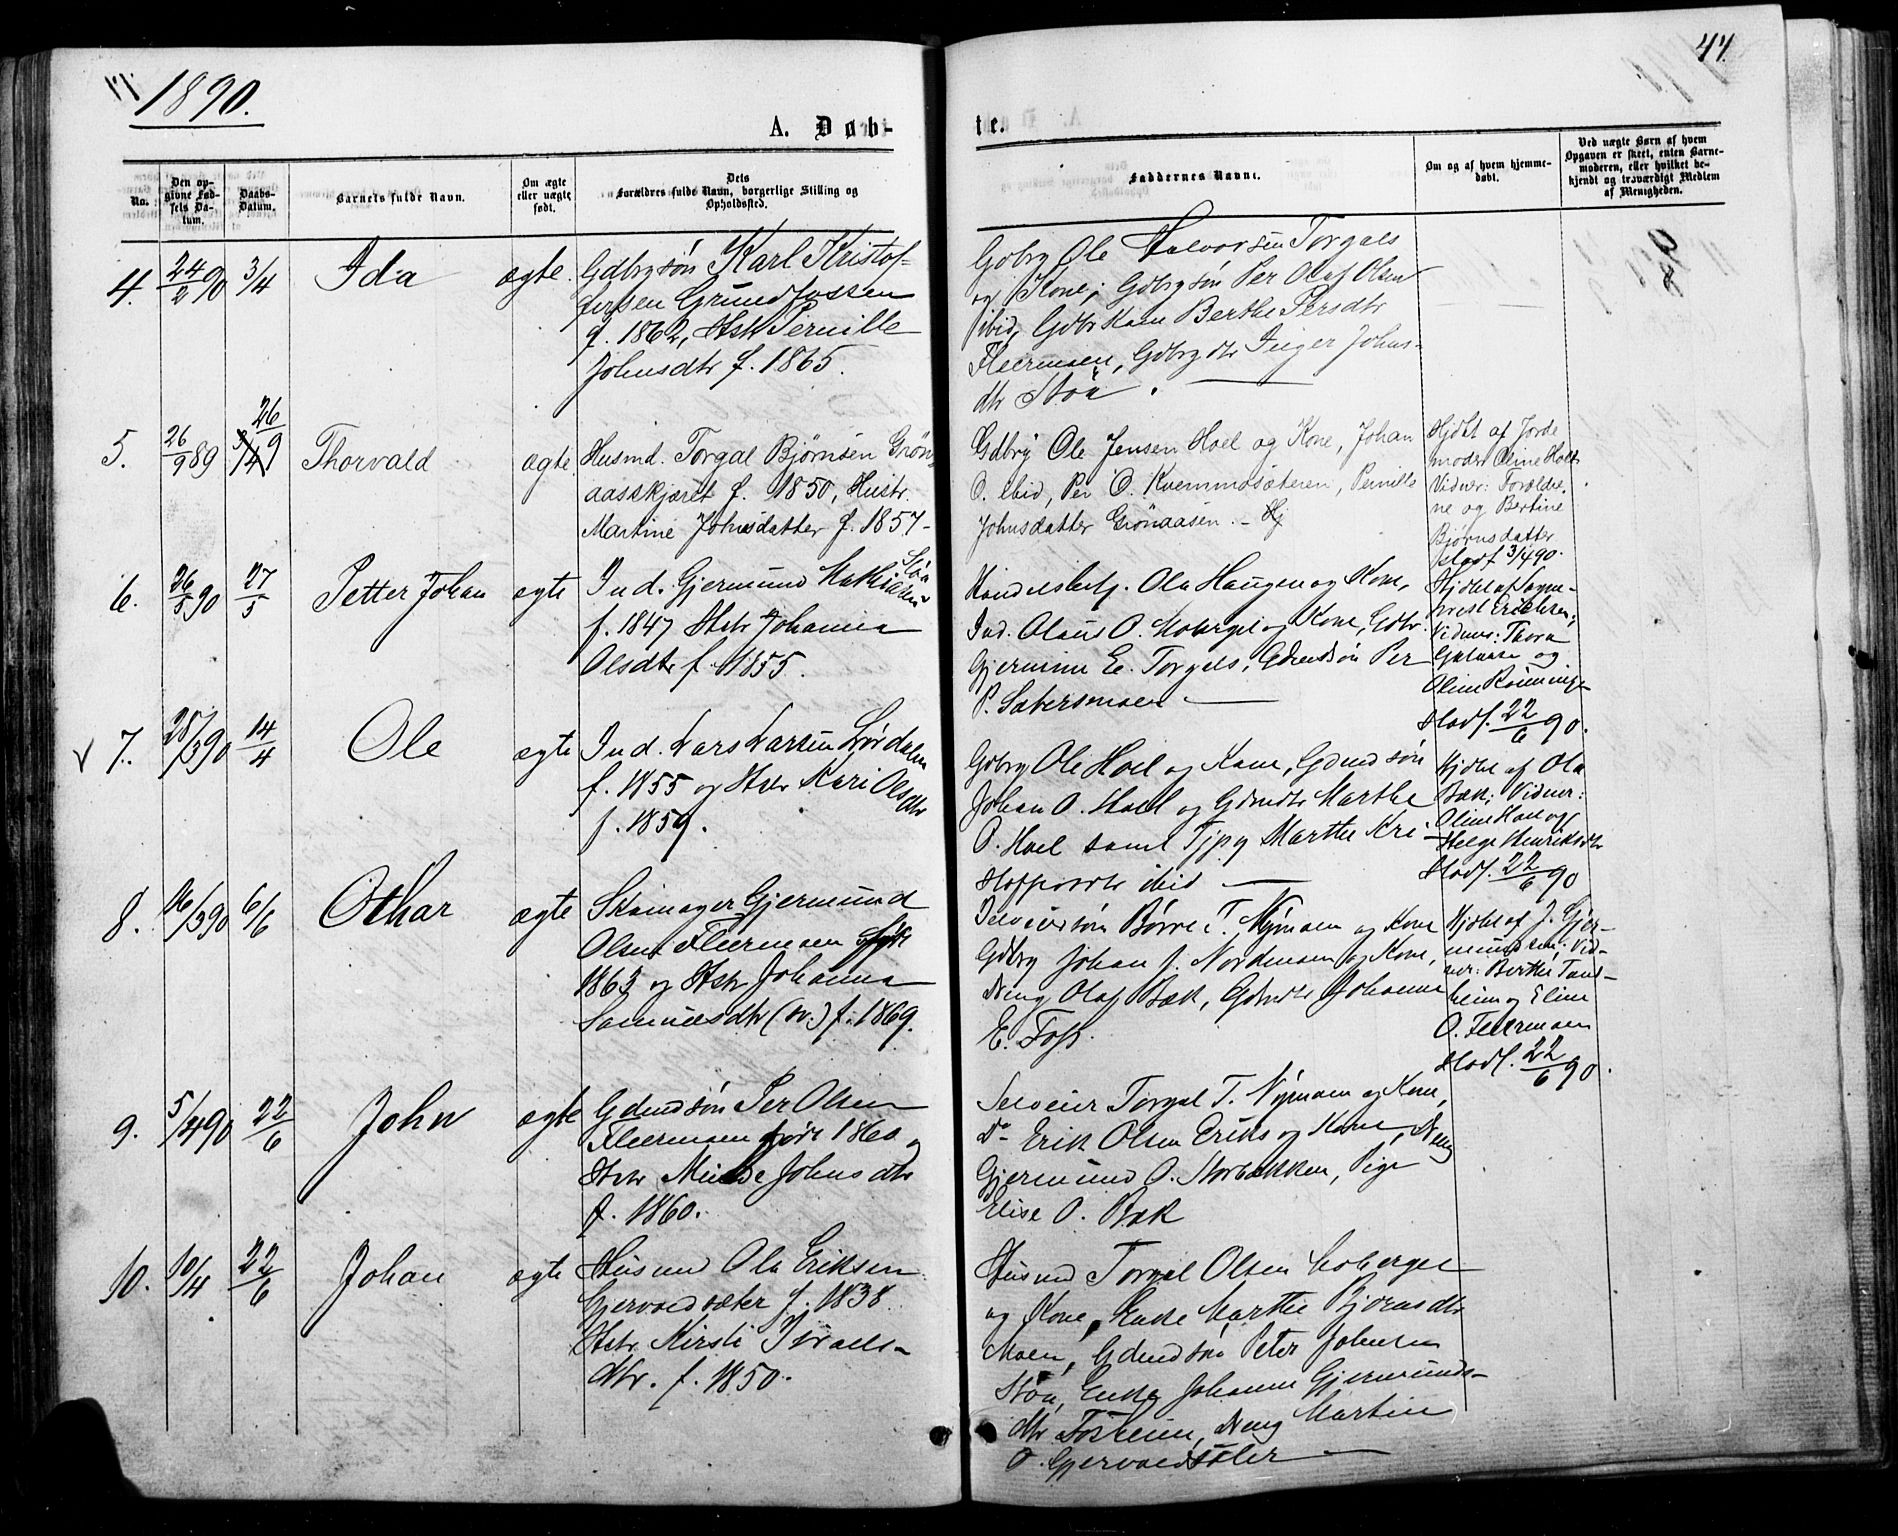 1890.
44.
A. Døb-
te.
No.
Den op-
givne Fød-
sels Da-
tum.
Daabs-
Datum.
Barnets fulde Navn.
Om ægte
eller uægte
født.
Dets
Forældres fulde Navn, borgerlige Stilling og
Opholdssted.
Faddernes Navne.
Om og af hvem hjemme-
døbt.
Ved uægte Børn af hvem
Opgaven er skeet, enten Barne-
moderen, eller hvilket be-
kjendt og troværdigt Medlem
af Menigheden.
4. 24/2 90 3/4 Ida ægte.
Gdbrgsøn Karl Kristof-
fersen Grundfossen
f. 1862, Hstr Pernille
Johnsdtr f. 1865.
Gdbrg Ole Halvorsen Torgals
og Kone; Gdbrgsøn Per Olaf Olsen
ibid, Gdbr Kone Berthe Persdtr
Fleermoen, Gdbrgdtr Inger Johns-
dtr Støa.
5. 26/9 89 26/9 Thorvald ægte
Husmd. Torgal Bjørnsen Grøn-
aasskjæret f. 1850, Hustr.
Martine Johnsdatter f. 1857-
Gdbrg Ole Jensen Hoel og Kone, Johan
O. ibid, Per O. Kvemmosæteren, Pernille
Johnsdatter Grønaasen. - Hj
Hjdbt af Jorde
moder Oline Holt
Vidner: Foreldre,
ne og Bertine
Bjørnsdatter
Stadf 3/4 90.
6. 26/5 90 27/5 Petter Johan ægte
Ind. Gjermund Mathisen Støa
f. 1847 Hstr Johanna
Olsdtr f. 1855.
Handelsbetj. Ola Haugen og Kone,
Ind. Olaus O. Moberget og Kone, Gdbr.
Gjermun E. Torgals, Gdmdsøn Per
P. Sætersmoen
Hjdbt af Sogne-
prest Erichsen;
Vidner: Thora
Galaase og
Oline Rønninge
Stadf. 22/6 90.
7. 28/3 90 14/4 Ole ægte
Ind. Lars Larsen Lørdalen
f. 1855 og Hstr Kari Olsdtr
f. 1859.
Gdbrg Ole Hoel og Kone, Gdmdsøn
Johan O. Hoel og Gdmdtr Marthe
O. Hoel samt Tjpg Marthe Kri-
stoffersdtr ibid
Hjdbt af Ola
Bæk; Vidner:
Oline Hoel og
Helge Henriksdtr
Stadf. 22/6 90
8. 16/3 90 6/6 Othar ægte
Skomager Gjermund
Olsen Fleermoen født
1863 og Hstr Johanna
Samuelsdtr (sv.) f. 1869.
Selveiersøn Børre T. Nymoen og Kone
Gdbrg Johan J. Nordmoen og Kone,
Ung Olaf Bæk, Gdmdtr Johanne
E. Foss.
Hjdbt af J. Gjer-
mundsen; Vid-
ner: Berthe Tand-
heim og Eline
O. Fleermoen
Stadf. 22/6 90.
9. 5/4 90 22/6 John ægte
Gdmdsøn Per Olsen
Fleermoen født 1860 og
Hstr Mine Johnsdtr
f. 1860.
Selveier Torgal T. Nymoen og Kone,
Do Erik Olsen Eriks og Kone, Ung
Gjermund O. Storbækken, Pige
Elise O. Bæk
10. 10/4 22/6 Johan ægte
Husmd Ola Eriksen
Gjervoldsæter f. 1838.
Hstr. Kirsti Israels-
dtr. f. 1850.
Husmd Torgal Olsen Moberget
og Kone, Enke Marthe Bjørnsdtr
Moen, Gdmdsøn Peter Johnsen
Støa, Enke Johanne Gjermunds-
dtr Fosheim, Ung Martin
O. Gjervoldsæter